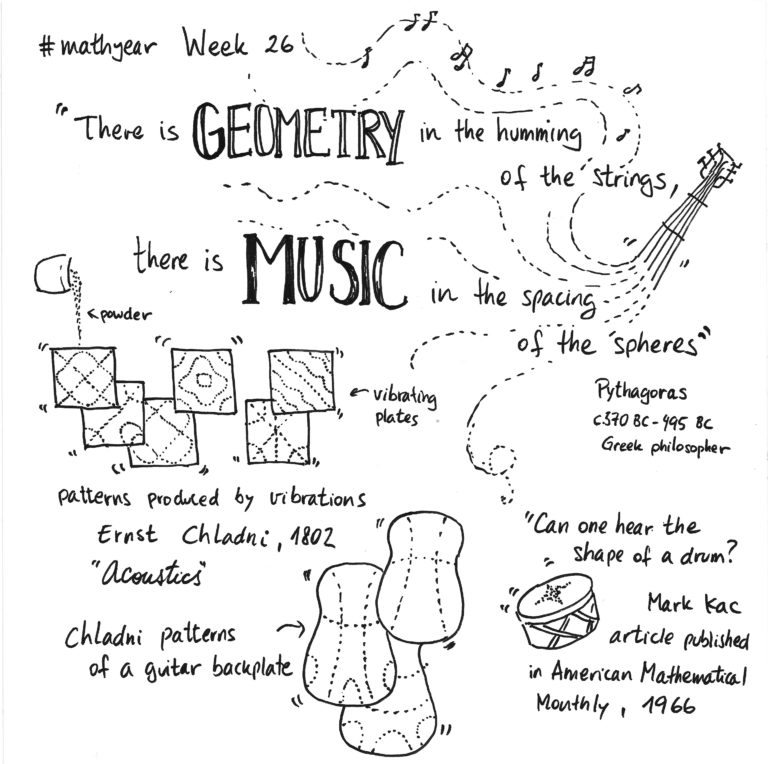 #mathyear Week 26
"There is GEOMETRY in the humming
of the strings,
there is MUSIC in the spacing
of the spheres"
powder
vibrating
plates
Pythagoras
c370 BC - 495 BC
Greek philosopher
patterns produced by vibrations
Ernst Chladni, 1802
"Acoustics"
Chladni patterns
of a guitar backplate
"Can one hear the
shape of a drum?
Mark Kac
article published
in American Mathematical
Monthly, 1966